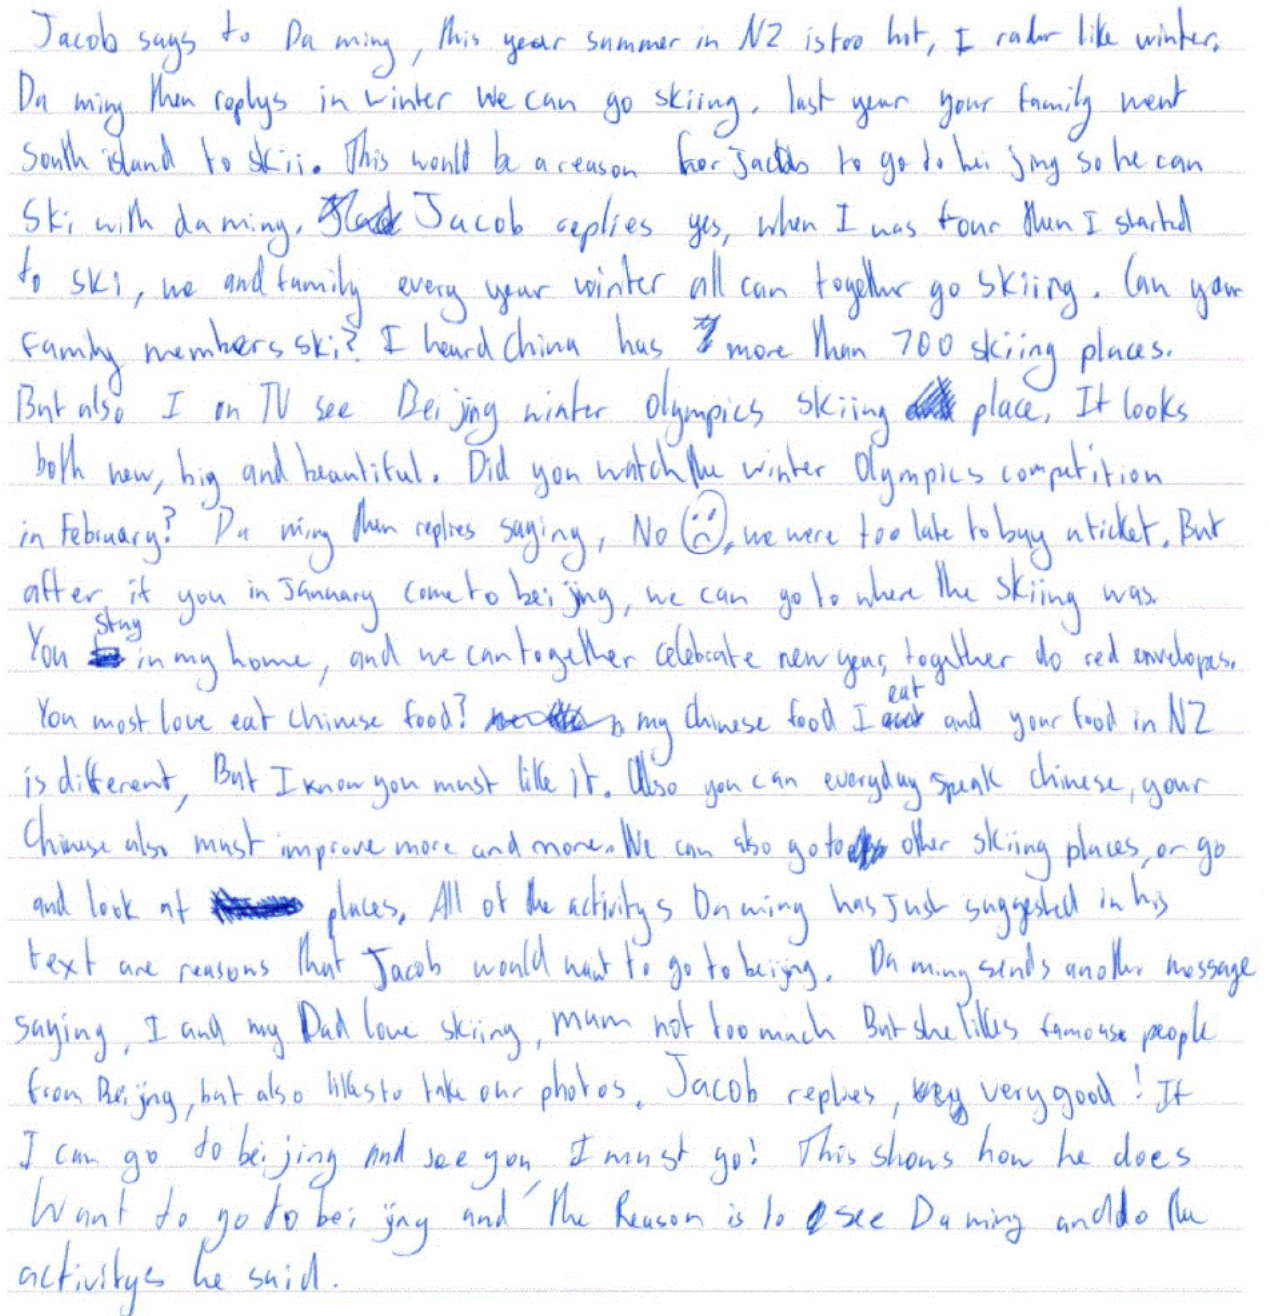 Jacob says to Da ming, this year summer in NZ is too hot, I radur like winter.
Da ming then replys in winter we can go skiing. last year your family went
South island to skii. This would be a reason for Jacob to go to bei jing so he can
Ski with da ming. Jacob replies yes, when I was four then I started
to ski, we and family every year winter all can together go skiing. Can your
family members ski? I heard China has more than 700 skiing places.
But also I on TV see Bei jing winter olympics skiing place, It looks
both new, big and beautiful. Did you watch the winter Olympics competition
in February? Da ming then replies saying, No ☹, we were too late to buy a ticket. But
after if you in January come to bei jing, we can go to where the skiing was.
You stay in my home, and we can together celebrate new year, together do red envelopes.
You most love eat Chinese food? my Chinese food I eat and your food in NZ
is different, But I know you must like it. Also you can everyday speak chinese, your
Chinese also must improve more and more. We can also go to other skiing places, or go
and look at places. All of the activitys Da ming has Just suggested in his
text are reasons that Jacob would want to go to beijing. Da ming sends another message
saying, I and my Dad love skiing, mum not too much But she likes famouse people
from Bei jing, but also likes to take our photos. Jacob replies, very good! If
I can go to bei jing and see you, I must go! This shows how he does
Want to go to bei jing and the Reason is to see Da ming and do the
activitys he said.